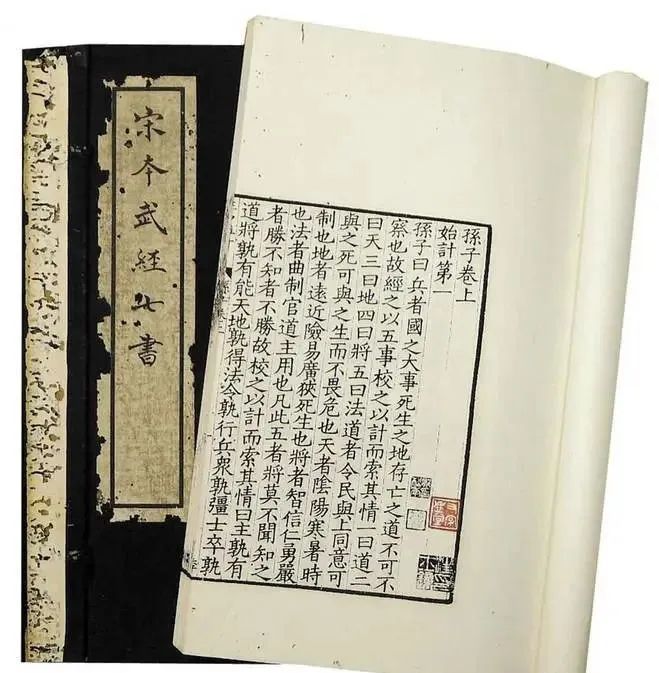 宋本武經七書
孫子卷上
始計第一
孫子曰兵者國之大事死生之地存亡之道不可不
察也故經之以五事校之以計而索其情一曰道二
曰天三曰地四曰將五曰法道者令民與上同意可
與之死可與之生而不畏危也天者陰陽寒暑時
制也地者遠近險易廣狹死生也將者智信仁勇嚴
也法者曲制官道主用也凡此五者將莫不聞知之
者勝不知者不勝故校之以計而索其情曰主孰有
道將孰有能天地孰得法令孰行兵衆孰彊士卒孰